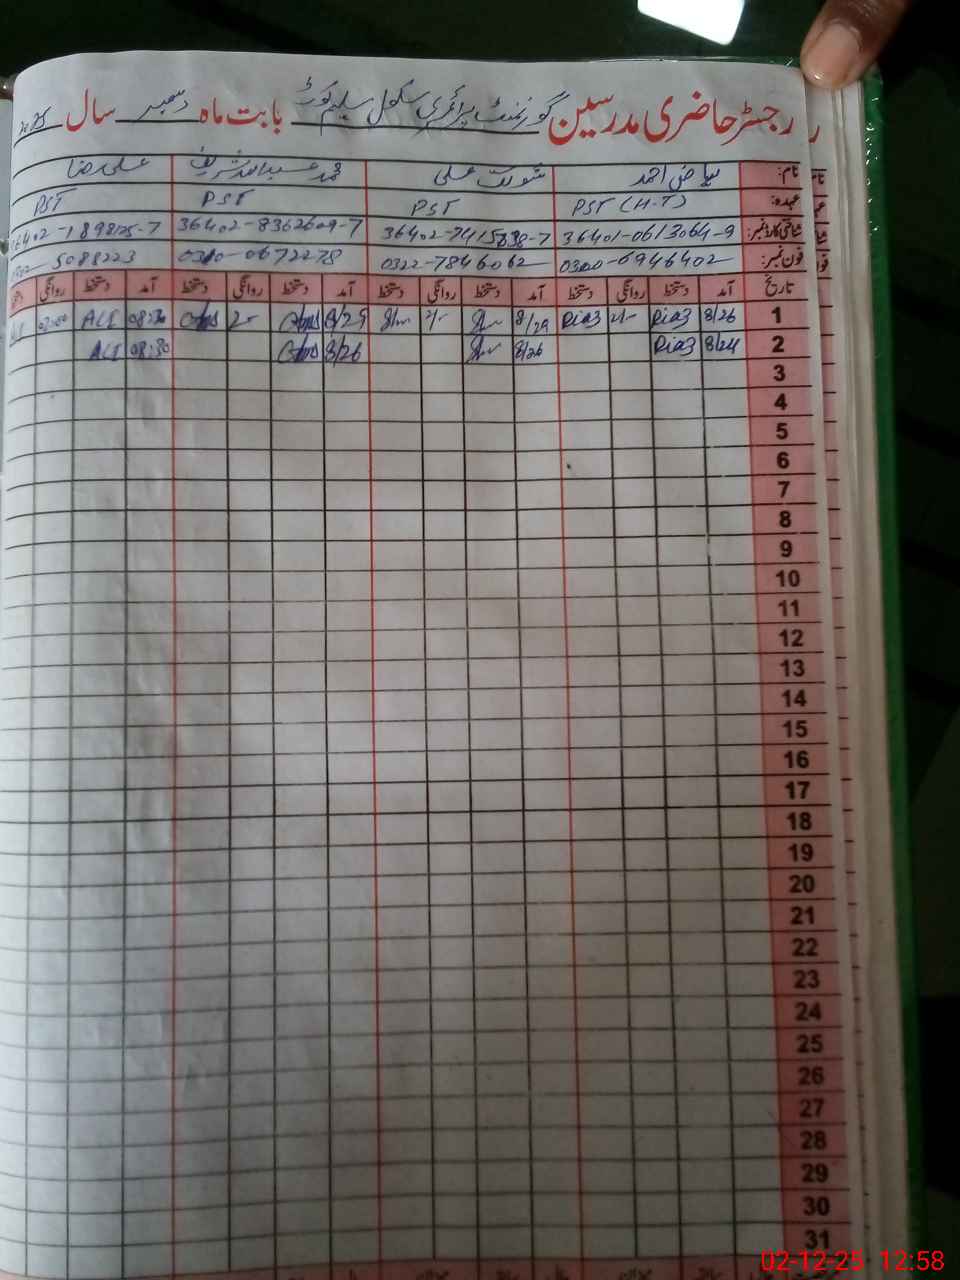 رجسٹر حاضری مدرسین گورنمنٹ پرائمری سکول سلیم کوٹ بابت ماہ دسمبر سال 2025
نام: ریاض احمد شوکت علی محمد عبداللہ شریف علی رضا
عہدہ: PST (H-T) PST PST PST
شناختی کارڈ نمبر: 36401-0613064-9 36402-7415838-7 36402-8362609-7
فون نمبر: 0300-6946402 0322-7846062 0310-0672278 5088223
تاریخ آمد دستخط روانگی دستخط آمد دستخط روانگی دستخط آمد دستخط روانگی دستخط آمد دستخط روانگی
1 8/26 Riaz 2/- Riaz 8/29 2/- 8/25 2- 08:30 ALI 02:00
2 8/24 Riaz 8/26 8/26 08:30 ALI
3
4
5
6
7
8
9
10
11
12
13
14
15
16
17
18
19
20
21
22
23
24
25
26
27
28
29
30
31
02-12-25 12:58